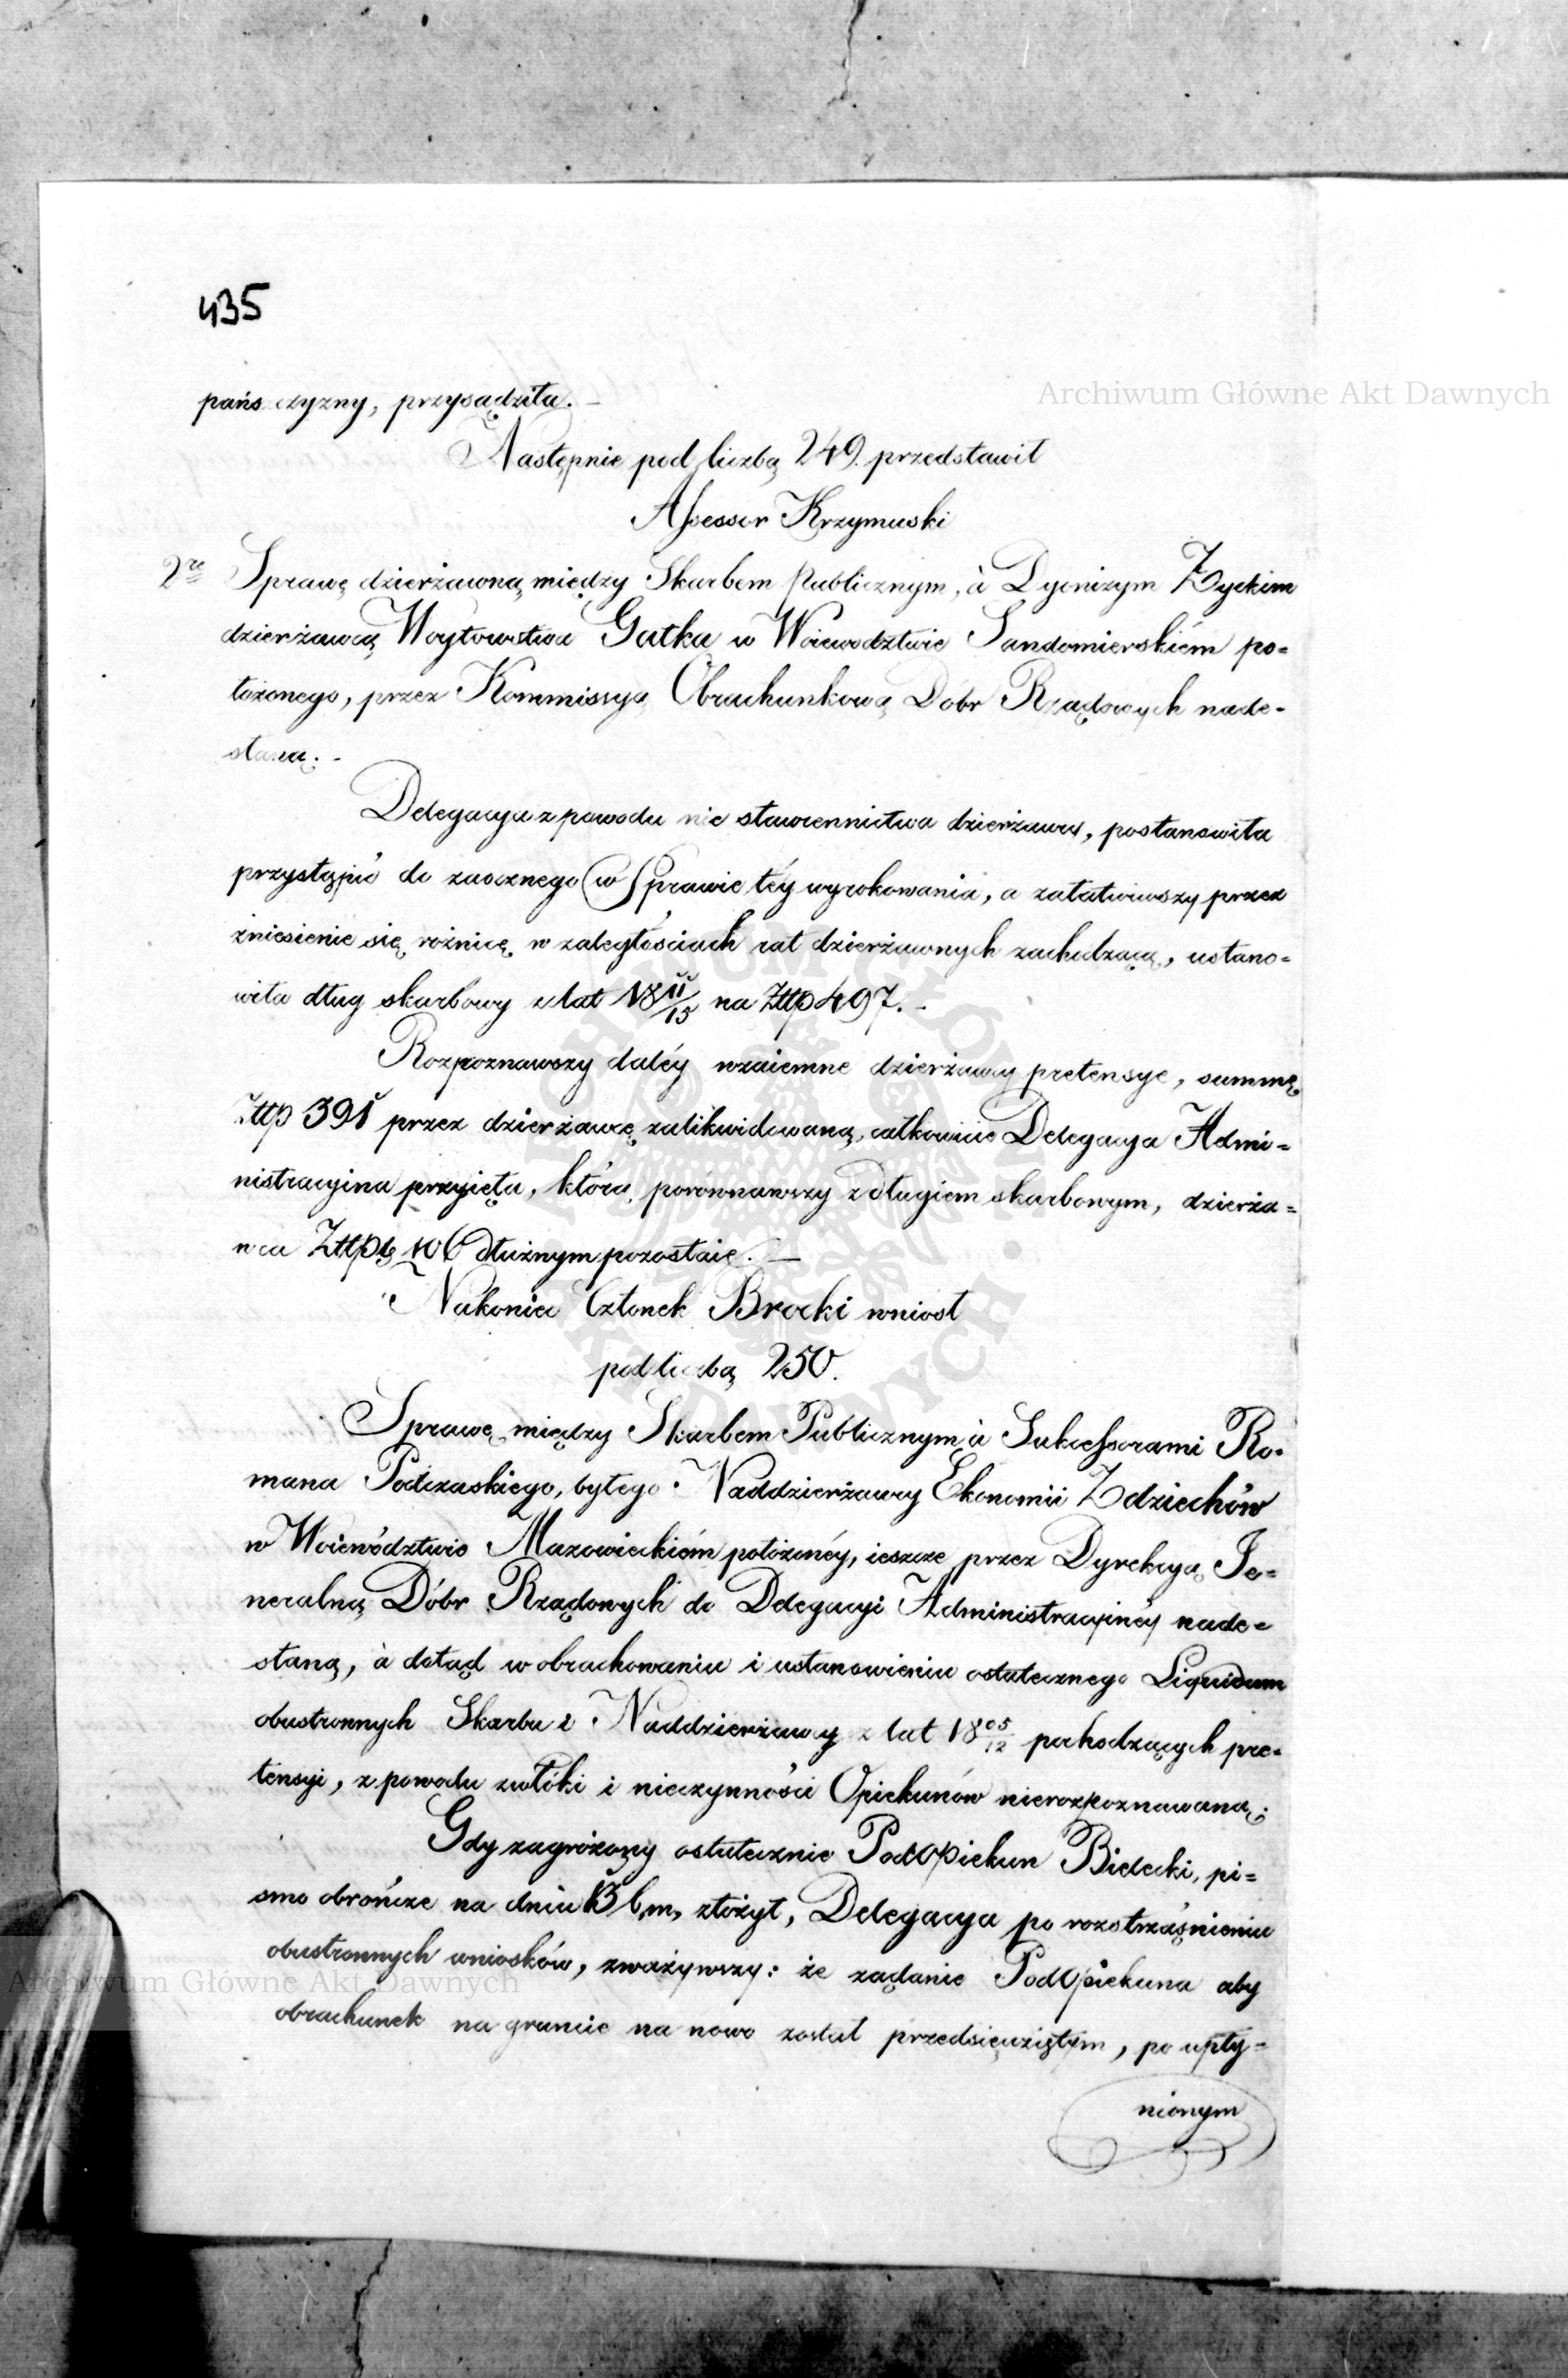 435
Archiwum Główne Akt Dawnych
pańsczyzny, przysądziła. –
Następnie pod liczbą 249. przedstawił
Assessor Krzymuski
2re Sprawę dzierżawną między Skarbem Publicznym, à Dyonizym Życkim
dzierżawcą Woytowstwa Gatka w Woiewodztwie Sandomierskiém po=
łożonego, przez Kommissyą Obrachunkową Dóbr Rządowych nade=
słaną. –
Delegacya z powodu nie stawiennictwa dzierżawcy, postanowiła
przystąpić do zaocznego w Sprawie téy wyrokowania, a załatwiwszy przez
zniesienie się różnicę w zaległościach rat dzierżawnych zachodzącą, ustano=
wiła dług skarbowy z lat 18 11/15 na Złtp 497. –
Rozpoznawszy daléy wzaiemne dzierżawcy pretensye, summę
Złtp 391 przez dzierżawcę zalikwidowaną, całkowicie Delegacya Admi=
nistracyina przyięła, którą porównawszy z długiem skarbowym, dzierża=
wca Złtpb 106 dłużnym pozostaie. —
Nakoniec Członek Brocki wniosł
pod liczbą 250.
Sprawę między Skarbem Publicznym à Sukcessorami Ro=
mana Podczaskiego, byłego Naddzierżawcy Ekonomii Zdziechów
w Woiewództwie Mazowieckiém położonéy, ieszcze przez Dyrekcyą Je=
neralną Dóbr Rządowych do Delegacyi Administracyinéy nade=
słaną, à dotąd w obrachowaniu i ustanowieniu ostatecznego Liquidum
obustronnych Skarbu i Naddzierżawcy z lat 18 05/12 pochodzących pre=
tensyi, z powodu zwłóki i nieczynności Opiekunów nierozpoznawaną.
Gdy zagrożony ostatecznie Podopiekun Bielecki, pi=
smo obrończe na dniu 13 b.m. złożył, Delegacya po roztrząśnieniu
obustronnych wniosków, zważywszy: że żądanie Podopiekuna aby
Archiwum Główne Akt Dawnych
obrachunek na gruncie na nowo został przedsięwziętym, po upły=
nionym